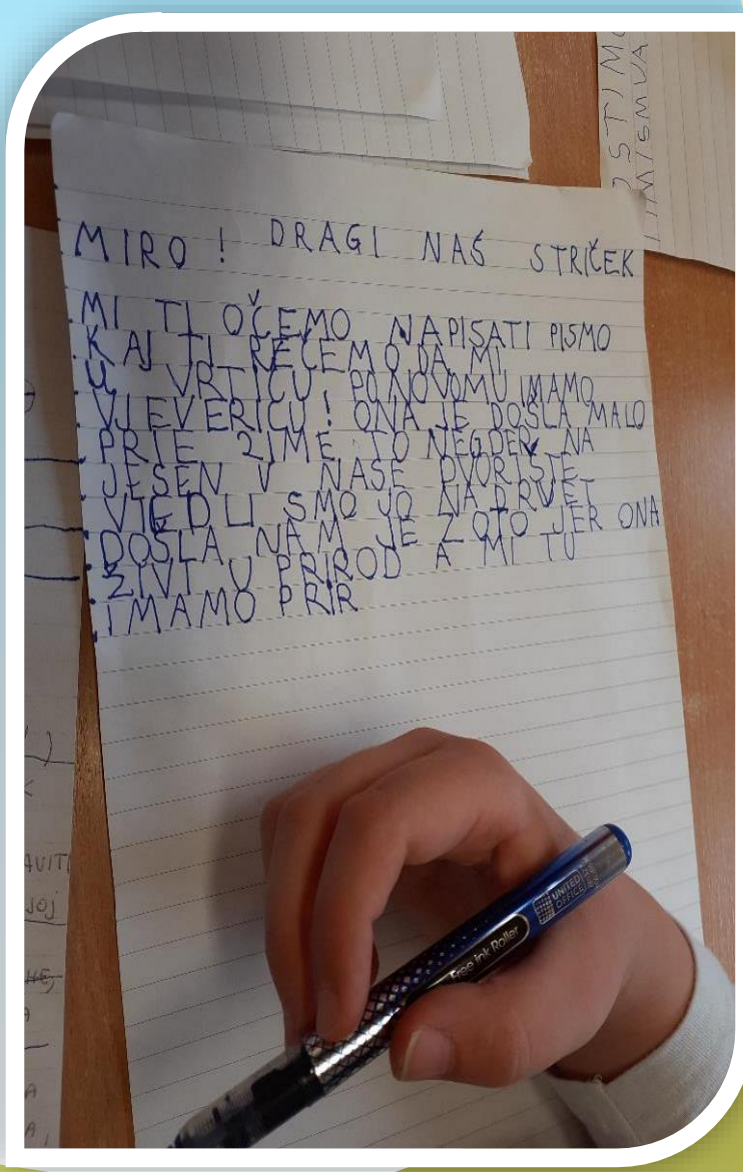 OSTIMO
IMISMVA
MIRO ! DRAGI NAŠ STRIČEK
MI TI OČEMO NAPISATI PISMO
KAJ TI REČEMO DA MI
U VRTIĆU PONOVOMU IMAMO
VJEVERICU! ONA JE DOŠLA MALO
PRIE ZIME TO NEGDER NA
JESEN V NAŠE DVORIŠTE
VIEDLI SMO JO NA DRVET
DOŠLA NAM JE ZOTO JER ONA
ŽIVI U PRIROD A MI TU
IMAMO PRIR
AVITI
JOJ
HE,
A
A
A,
UNITED
OFFICE
Free ink Roller